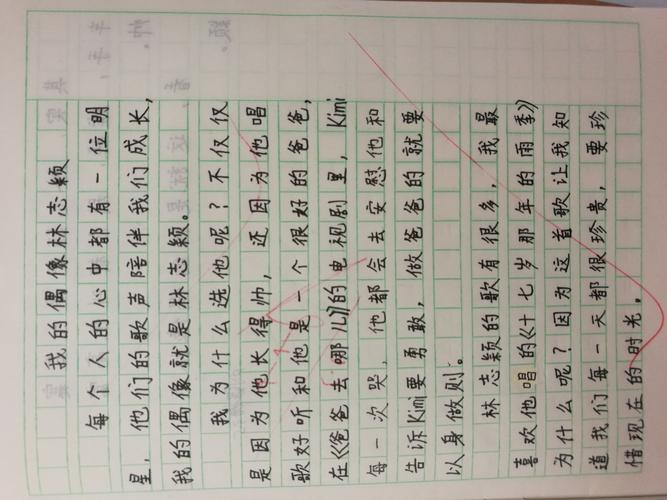 我的偶像林志颖
每个人的心中都有一位明
星，他们的歌声陪伴我们成长，
我的偶像就是林志颖。
我为什么选他呢？不仅仅
是因为他长得帅，还因为他唱
歌好听和他是一个很好的爸爸，
在《爸爸去哪儿》的电视剧里，Kimi
每一次哭，他都会去安慰他和
告诉Kimi要勇敢，做爸爸的就要
以身做则。
林志颖的歌有很多，我最
喜欢他唱的《十七岁那年的雨季》
为什么呢？因为这首歌让我知
道我们每一天都很珍贵，要珍
惜现在的时光。